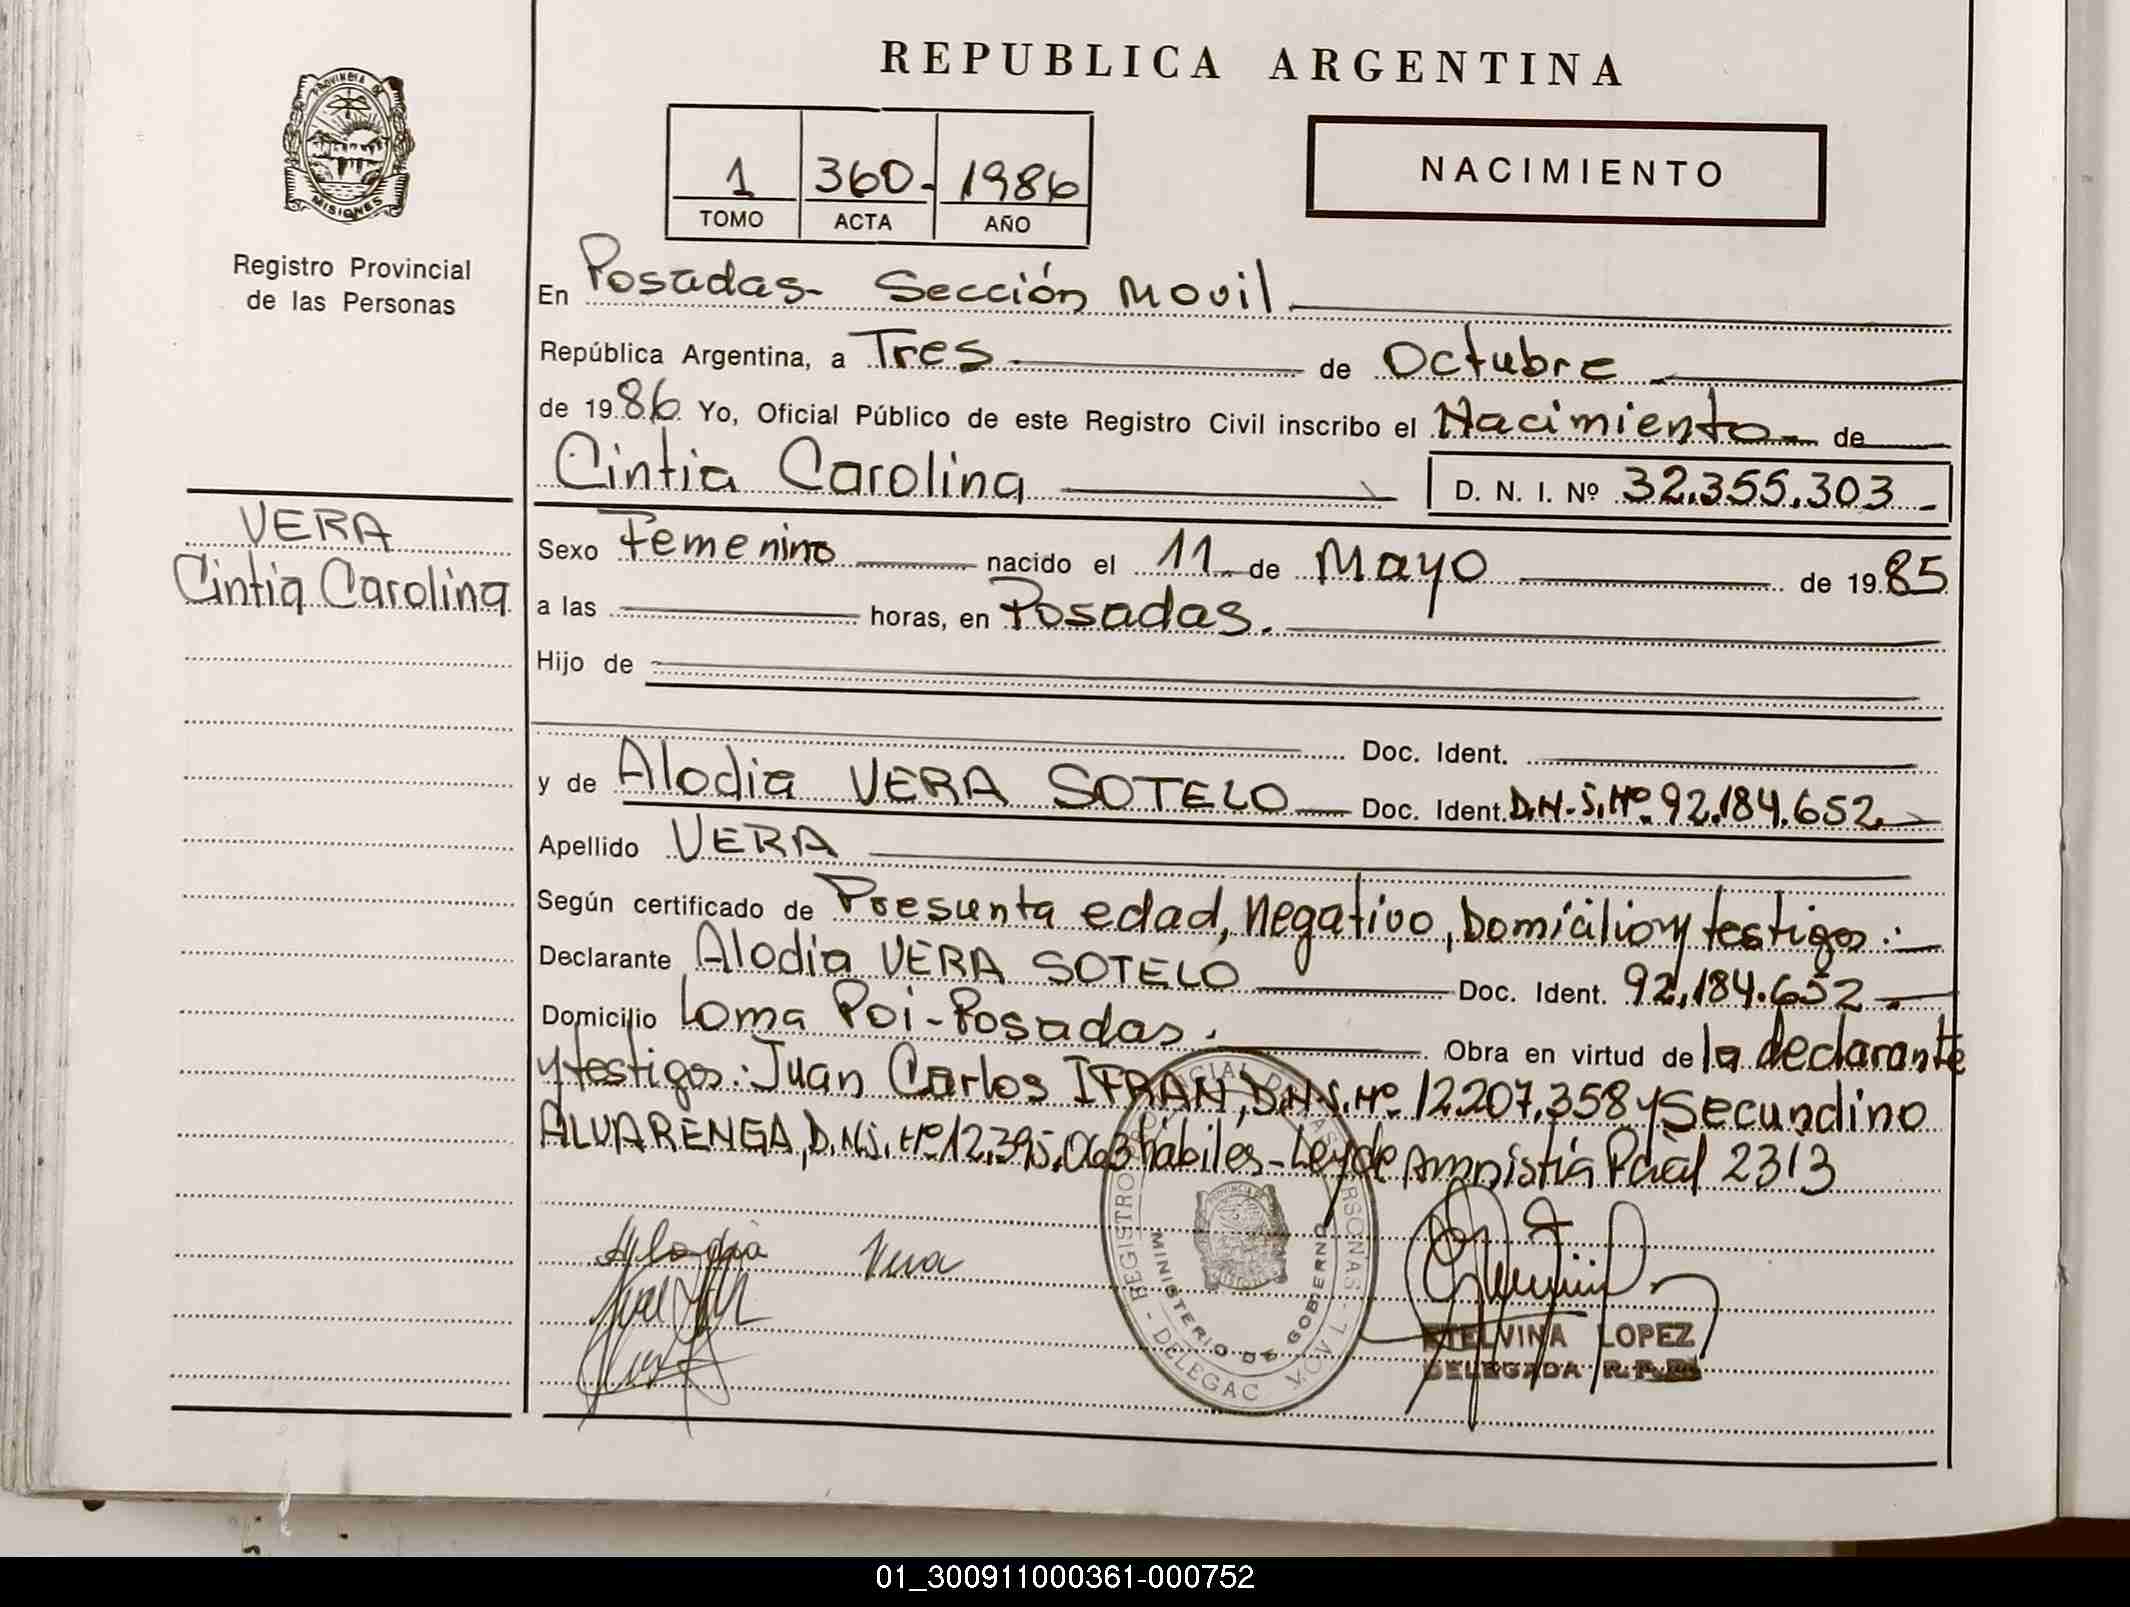 REPUBLICA ARGENTINA
PROVINCIA DE
MISIONES
Registro Provincial
de las Personas
1 360- 1986
TOMO ACTA AÑO
NACIMIENTO
En Posadas- Sección Movil
República Argentina, a Tres de Octubre
de 1986 Yo, Oficial Público de este Registro Civil inscribo el Nacimiento de
Cintia Carolina D. N. I. Nº 32.355.303
VERA
Cintia Carolina
Sexo Femenino nacido el 11 de Mayo de 1985
a las horas, en Posadas.
Hijo de
Doc. Ident.
y de Alodia VERA SOTELO Doc. Ident. D.N.I. Nº 92.184.652
Apellido VERA
Según certificado de Presunta edad, negativo, Domicilio y testigos.
Declarante Alodia VERA SOTELO Doc. Ident. 92.184.652
Domicilio Loma Poi-Posadas. Obra en virtud de la declarante
y testigos: Juan Carlos IFRAN, D.N.I. Nº 12.207.358 y Secundino
ALVARENGA, D.N.I. Nº 12.395.063 hábiles-Ley de Amnistía Pcial 2313
Alodia Vera
REGISTRO PERSONAS - DELEGAC MOVIL
MINISTERIO DE GOBIERNO
ETELVINA LOPEZ
DELEGADA R.P.P.
01_300911000361-000752